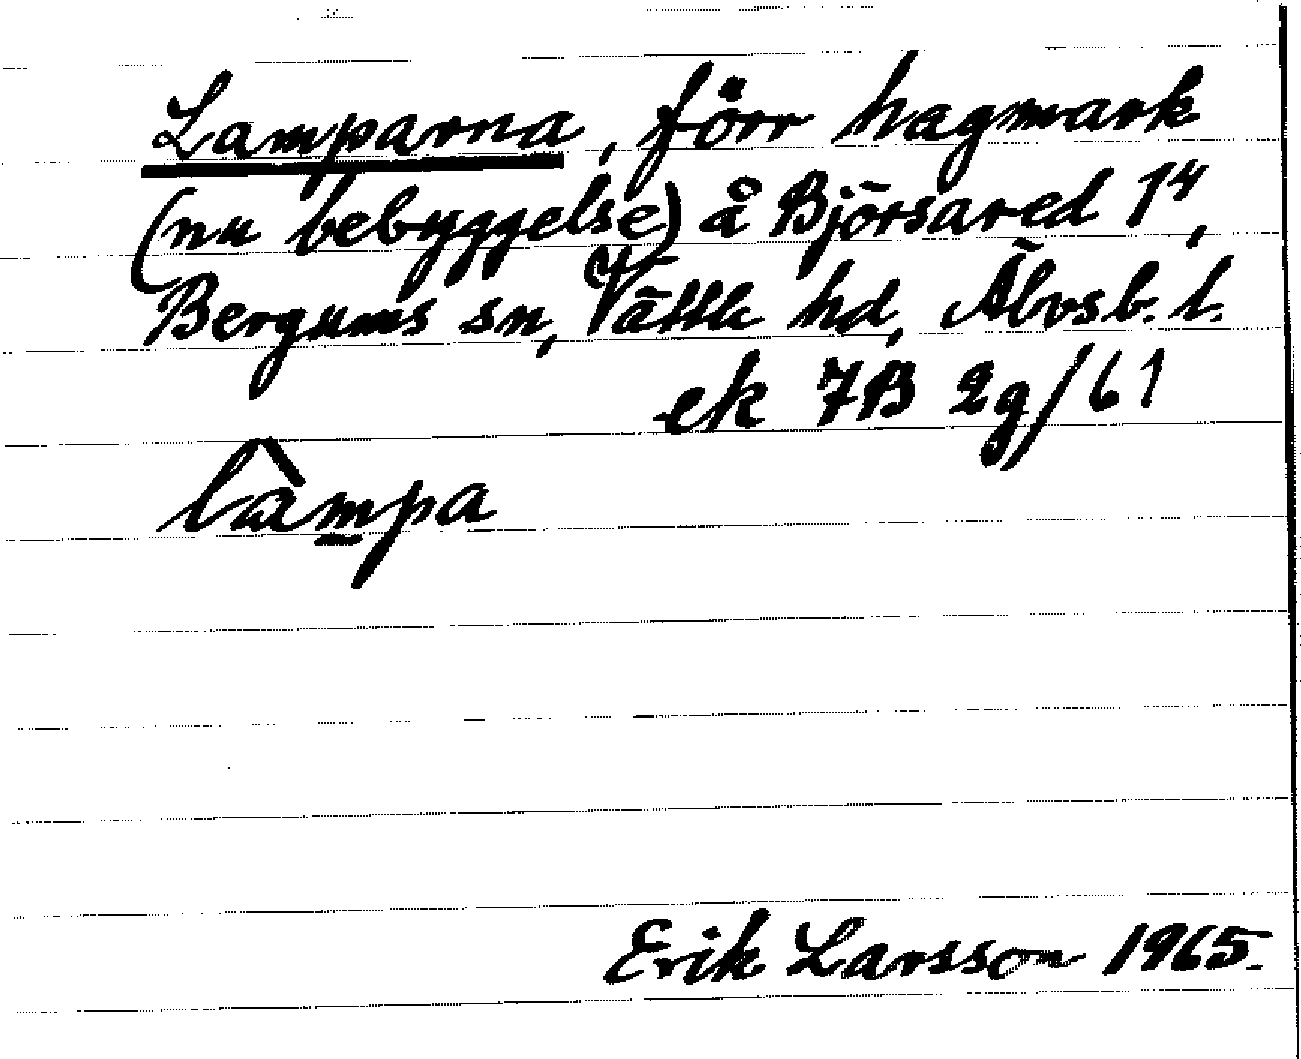 Lamparna, förr hagmark
(nu bebyggelse) å Björsared 1⁴,
Bergums sn, Vättle hd, Älvsb. l.
ek 7B 2g/61
làmpa
Erik Larsson 1965.